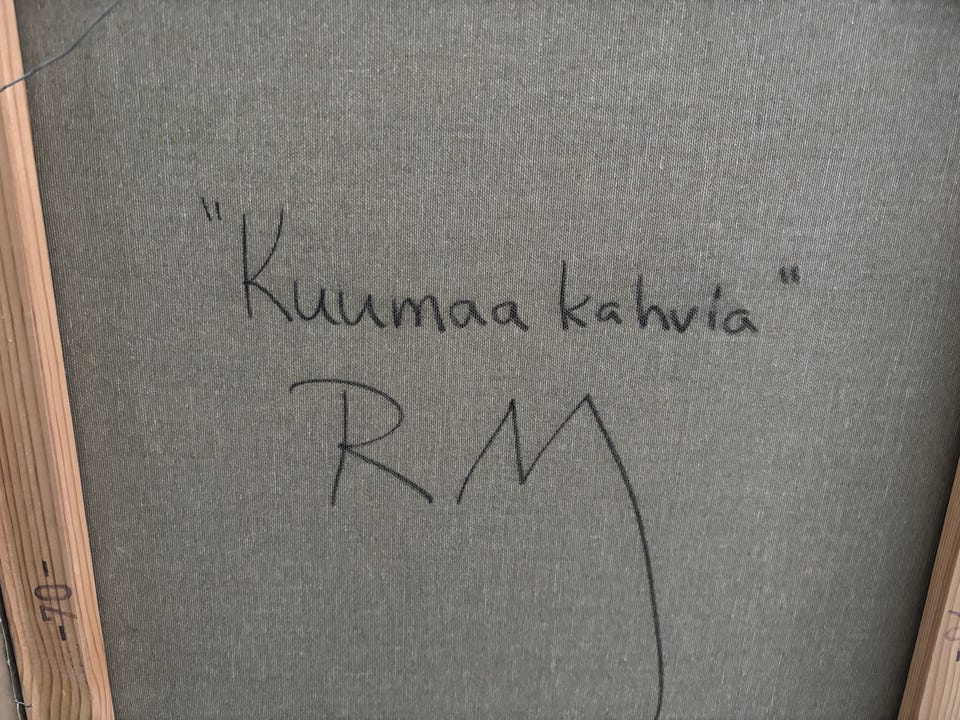 "Kuumaa kahvia"
RM
-70-